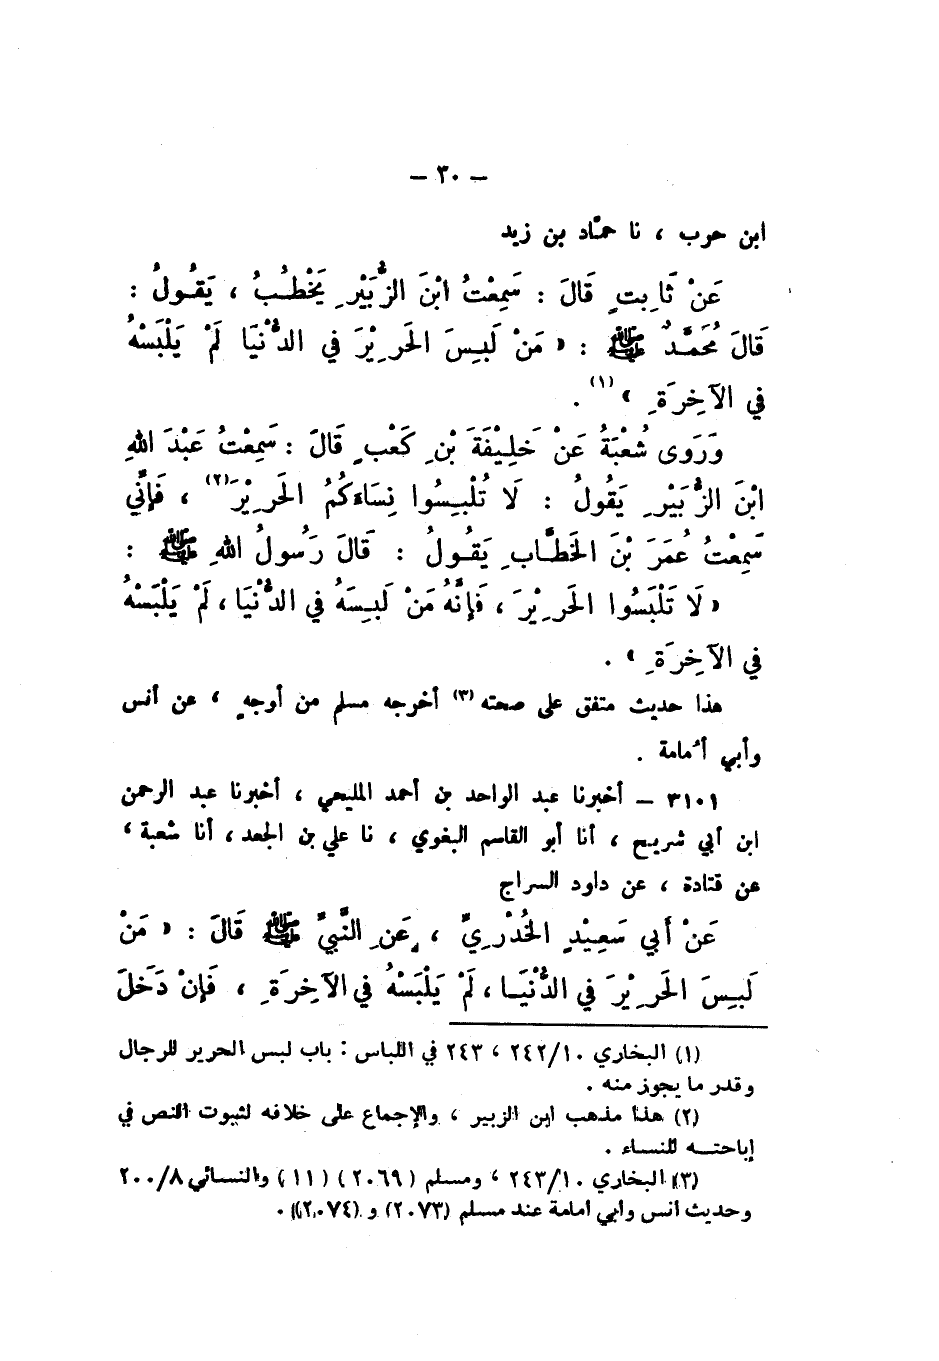 – ٣٠ –
ابن حرب ، نا حمَّاد بن زيد
عَنْ ثَابِتٍ قَالَ : سَمِعْتُ ابْنَ الزُّبَيْرِ يَخْطُبُ ، يَقُولُ :
قَالَ مُحَمَّدٌ ﷺ : « مَنْ لَبِسَ الحَرِيْرَ في الدُّنْيَا لَمْ يَلْبَسْهُ
في الآخِرَةِ » (١) .
وَرَوَى شُعْبَةُ عَنْ خَلِيْفَةَ بْنِ كَعْبٍ قَالَ : سَمِعْتُ عَبْدَ اللهِ
ابْنَ الزُّبَيْرِ يَقُولُ : لَا تُلْبِسُوا نِسَاءَكُمُ الحَرِيْرَ (٢) ، فَإنِّي
سَمِعْتُ عُمَرَ بْنَ الخَطَّابِ يَقُولُ : قَالَ رَسُولُ اللهِ ﷺ :
« لَا تَلْبَسُوا الحَرِيْرَ ، فَإنَّهُ مَنْ لَبِسَهُ في الدُّنْيَا ، لَمْ يَلْبَسْهُ
في الآخِرَةِ » .
هذا حديث متفق على صحته (٣) أخرجه مسلم من أوجهٍ ، عن أنس
وأبي أُمامة .
٣١٠١ – أخبرنا عبد الواحد بن أحمد المليحي ، أخبرنا عبد الرحمن
ابن أبي شريح ، أنا أبو القاسم البغوي ، نا علي بن الجعد ، أنا شعبة ،
عن قتادة ، عن داود السراج
عَنْ أَبي سَعِيْدٍ الخُدْرِيِّ ، عَنِ النَّبيِّ ﷺ قَالَ : « مَنْ
لَبِسَ الحَرِيْرَ في الدُّنْيَا ، لَمْ يَلْبَسْهُ في الآخِرَةِ ، فَإنْ دَخَلَ
(١) البخاري ٢٤٢/١٠ ، ٢٤٣ في اللباس : باب لبس الحرير للرجال
وقدر ما يجوز منه .
(٢) هذا مذهب ابن الزبير ، والإجماع على خلافه لثبوت النص في
إباحته للنساء .
(٣) البخاري ٢٤٣/١٠ ، ومسلم ( ٢٠٦٩ ) ( ١١ ) والنسائي ٢٠٠/٨
وحديث أنس وأبي امامة عند مسلم (٢٠٧٣) و (٢٠٧٤) .